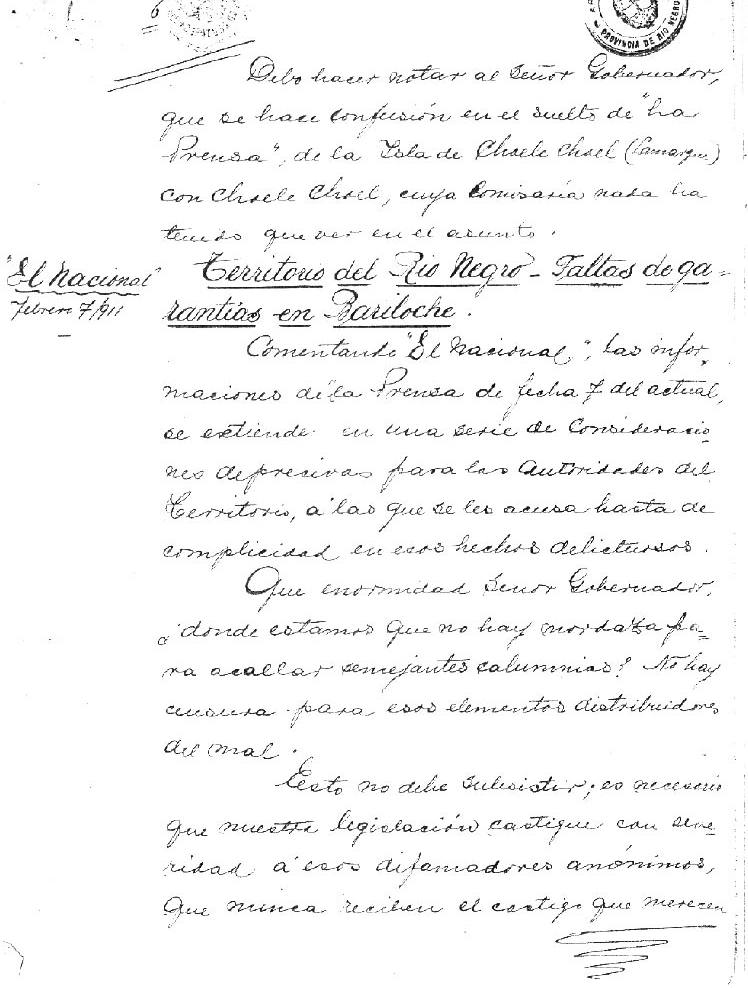 6
PROVINCIA DE RIO NEGRO
Debo hacer notar al Señor Gobernador,
que se hace confusión en el suelto de "La
Prensa", de la Isla de Choele Choel (Lamarque)
con Choele Choel, cuya Comisaría nada ha
tenido que ver en el asunto.
"El Nacional"
Febrero 7/911
Territorio del Rio Negro - Faltas de ga-
rantías en Bariloche.
Comentando "El Nacional", las infor-
maciones de la Prensa de fecha 7 del actual,
se estiende en una serie de Consideracio
nes depresivas para las Autoridades del
Territorio, á las que se les acusa hasta de
complicidad en esos hechos delictuosos.
Que enormidad Señor Gobernador,
¿donde estamos que no hay mordaza pa-
ra acallar semejantes calumnias? No hay
censura para esos elementos distribuidores
del mal.
Esto no debe subsistir; es necesario
que nuestra legislación castigue con seve
ridad á esos difamadores anónimos,
que nunca reciben el castigo que merecen